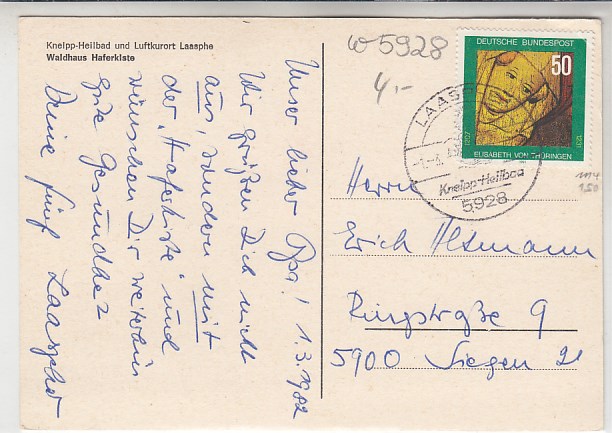 Kneipp-Heilbad und Luftkurort Laasphe
Waldhaus Haferkiste
Unser lieber Opa! 1.3.1982
Wir grüßen Dich nicht
aus, sondern mit
der „Haferkiste" und
wünschen Dir weiterhin
gute Gesundheit
Deine fünf Laaspher
W5928
4,-
DEUTSCHE BUNDESPOST
50
1207
1231
ELISABETH VON THÜRINGEN
LAASPHE
Kneipp-Heilbad
5928
1114
1,50
Herrn
Erich Altmann
Ringstraße 9
5900 Siegen 21